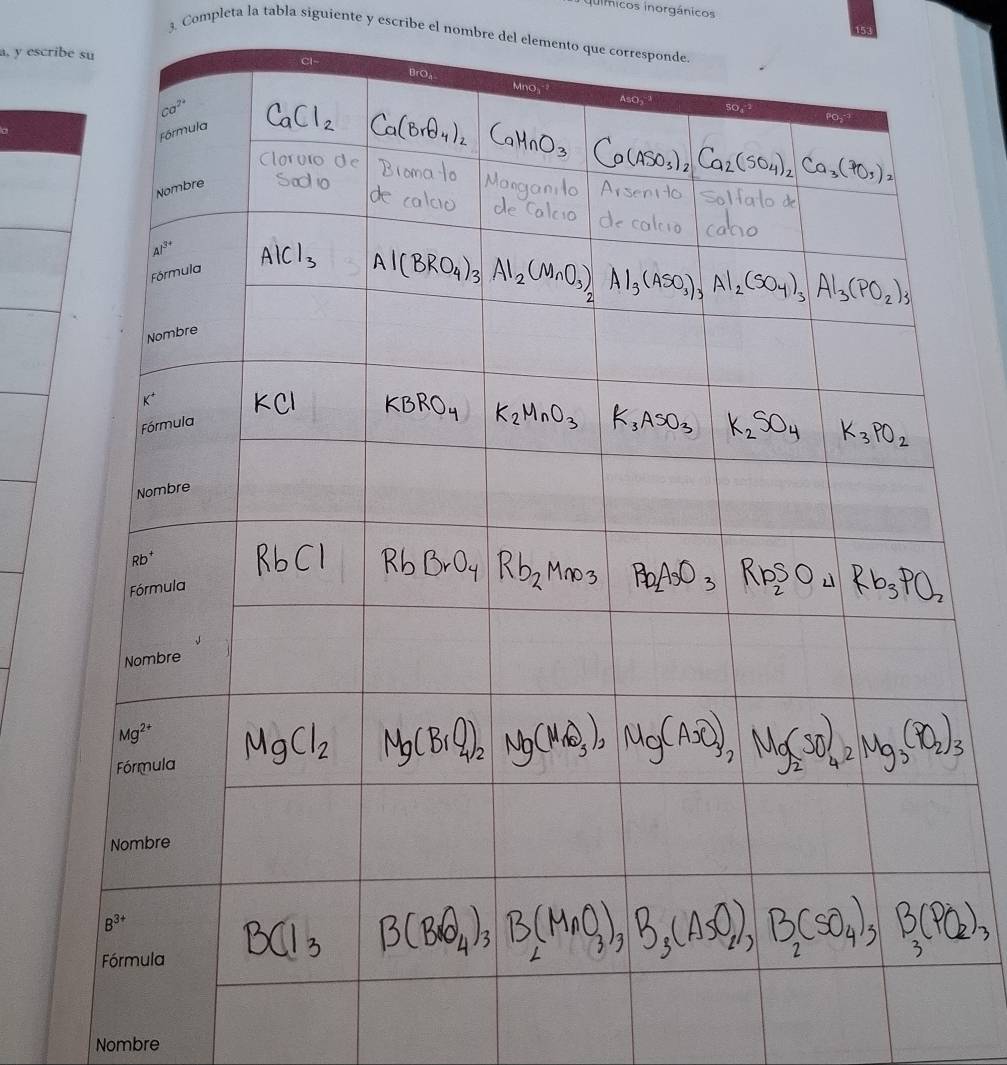 químicos inorgánicos
153
3. Completa la tabla siguiente y escribe el nombre del elemento que corresponde.
a, y escribe su
Cl- BrO₄- MnO₃⁻² AsO₃⁻³ SO₄⁻² PO₂⁻³
Ca²⁺
Fórmula CaCl₂ Ca(BrO₄)₂ CaMnO₃ Ca(ASO₃)₂ Ca₂(SO₄)₂ Ca₃(PO₃)₂
Nombre Cloruro de Bromato Manganito Arsenito Solfato de
Sodio de calcio de Calcio de calcio
Al³⁺
Fórmula AlCl₃ Al(BRO₄)₃ Al₂(MnO₃)₂ Al₃(ASO₃)₃ Al₂(SO₄)₃ Al₃(PO₂)₃
Nombre
K⁺
Fórmula KCl KBRO₄ K₂MnO₃ K₃ASO₃ K₂SO₄ K₃PO₂
Nombre
Rb⁺
Fórmula RbCl RbBrO₄ Rb₂MnO₃ Rb₂SO₄ Rb₃PO₂
Nombre
Mg²⁺
Fórmula MgCl₂ Mg(BrO₄)₂ Mg₂(SO₄)₂ Mg₃(PO₂)₃
Nombre
B³⁺
Fórmula BCl₃ B(BrO₄)₃ B₂(MnO₃)₃ B₃(ASO₂)₃ B₂(SO₄)₃ B₃(PO₂)₃
Nombre